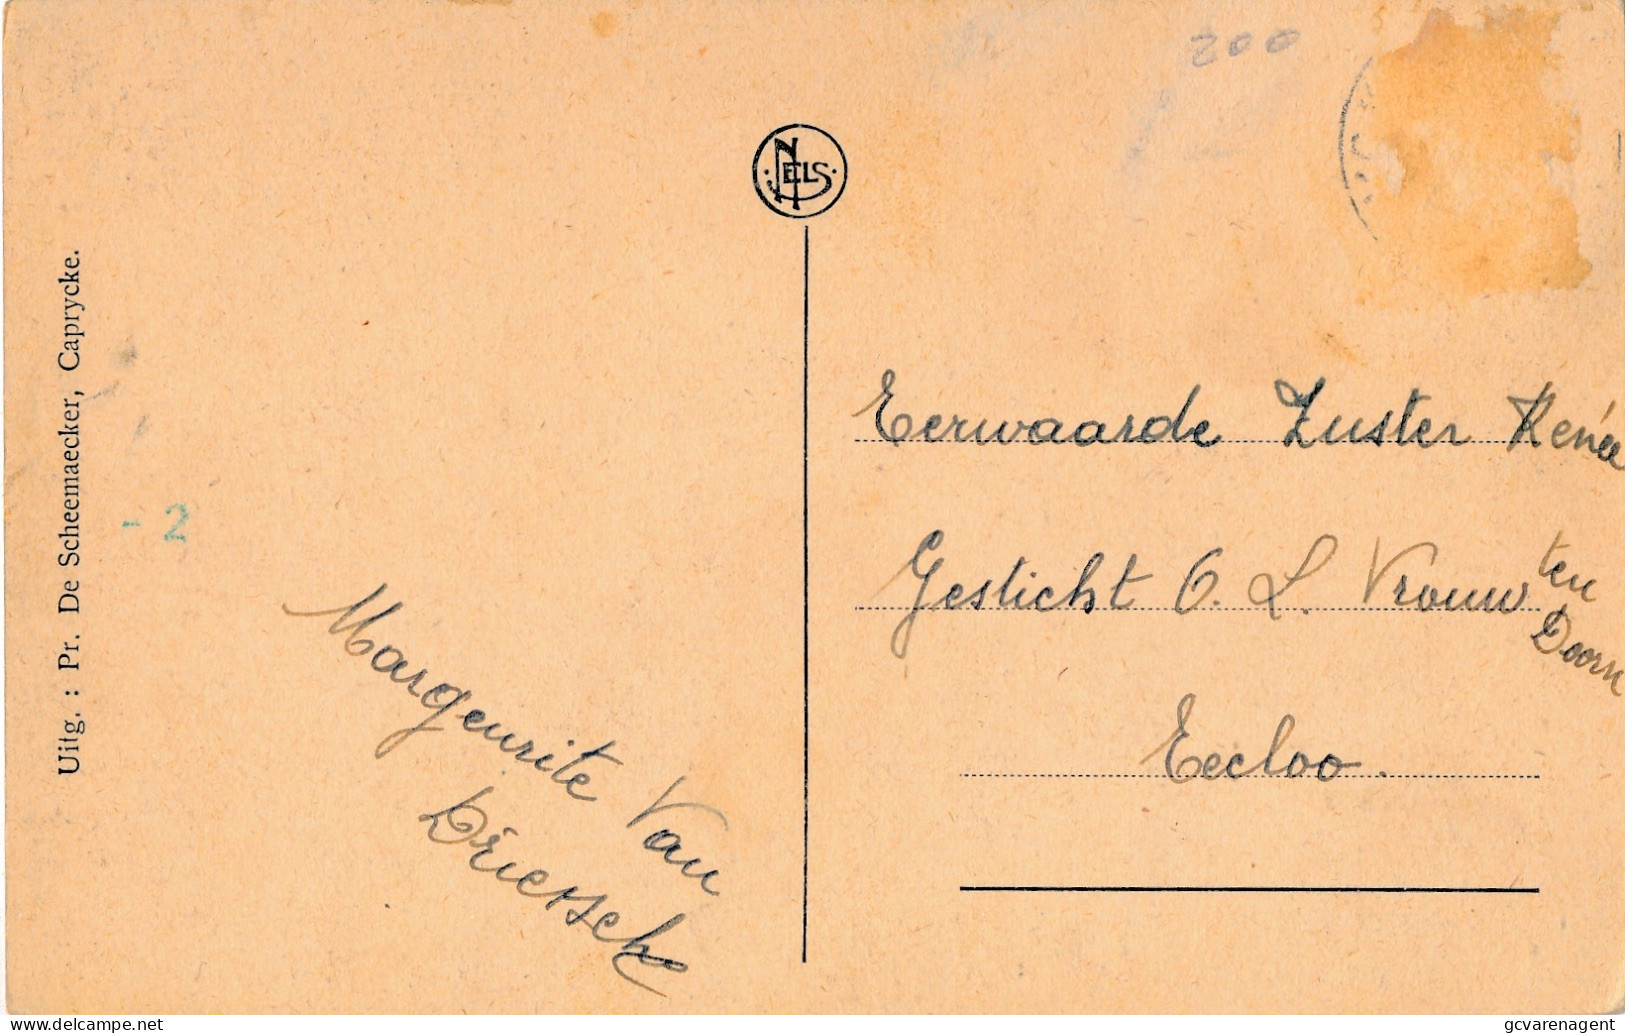 200
NELS
Uitg. : Pr. De Scheemaecker, Caprycke.
- 2
Margeurite Van
Driessche
Eerwaarde Zuster Renée
Gesticht O. L. Vrouw ten
Doorn
Eecloo.
delcampe.net
gcvarenagent